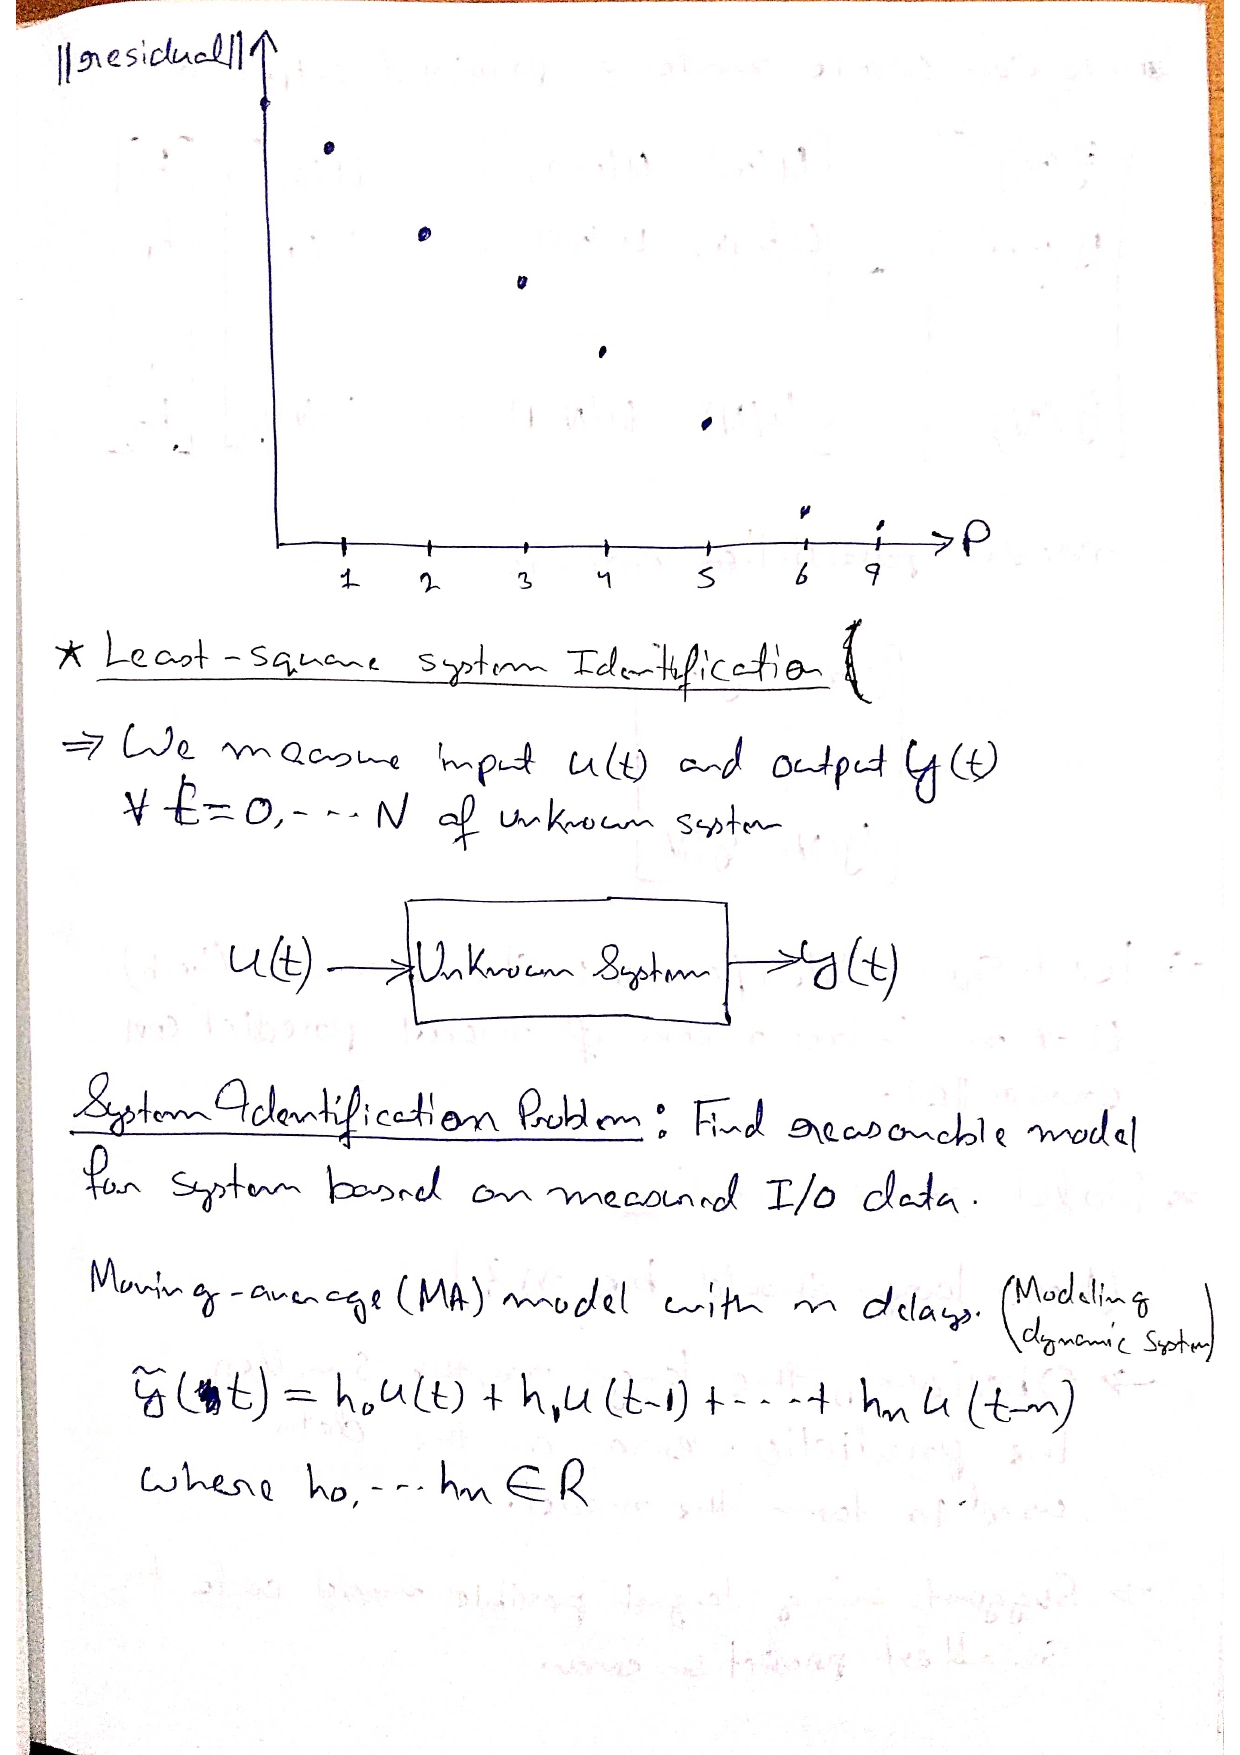 ||residual||
P
1 2 3 4 5 6 9
* Least-square system Identification
⇒ We measure input u(t) and output y(t)
∀ t=0,---N of unknown system
u(t) → Unknown System → y(t)
System Identification Problem: Find reasonable model
for system based on measured I/O data.
Moving-average (MA) model with n delays. (Modeling
dynamic System)
ỹ(t) = h₀u(t) + h₁u(t-1) + ---- + hₙu(t-n)
where h₀,---hₙ ∈ R